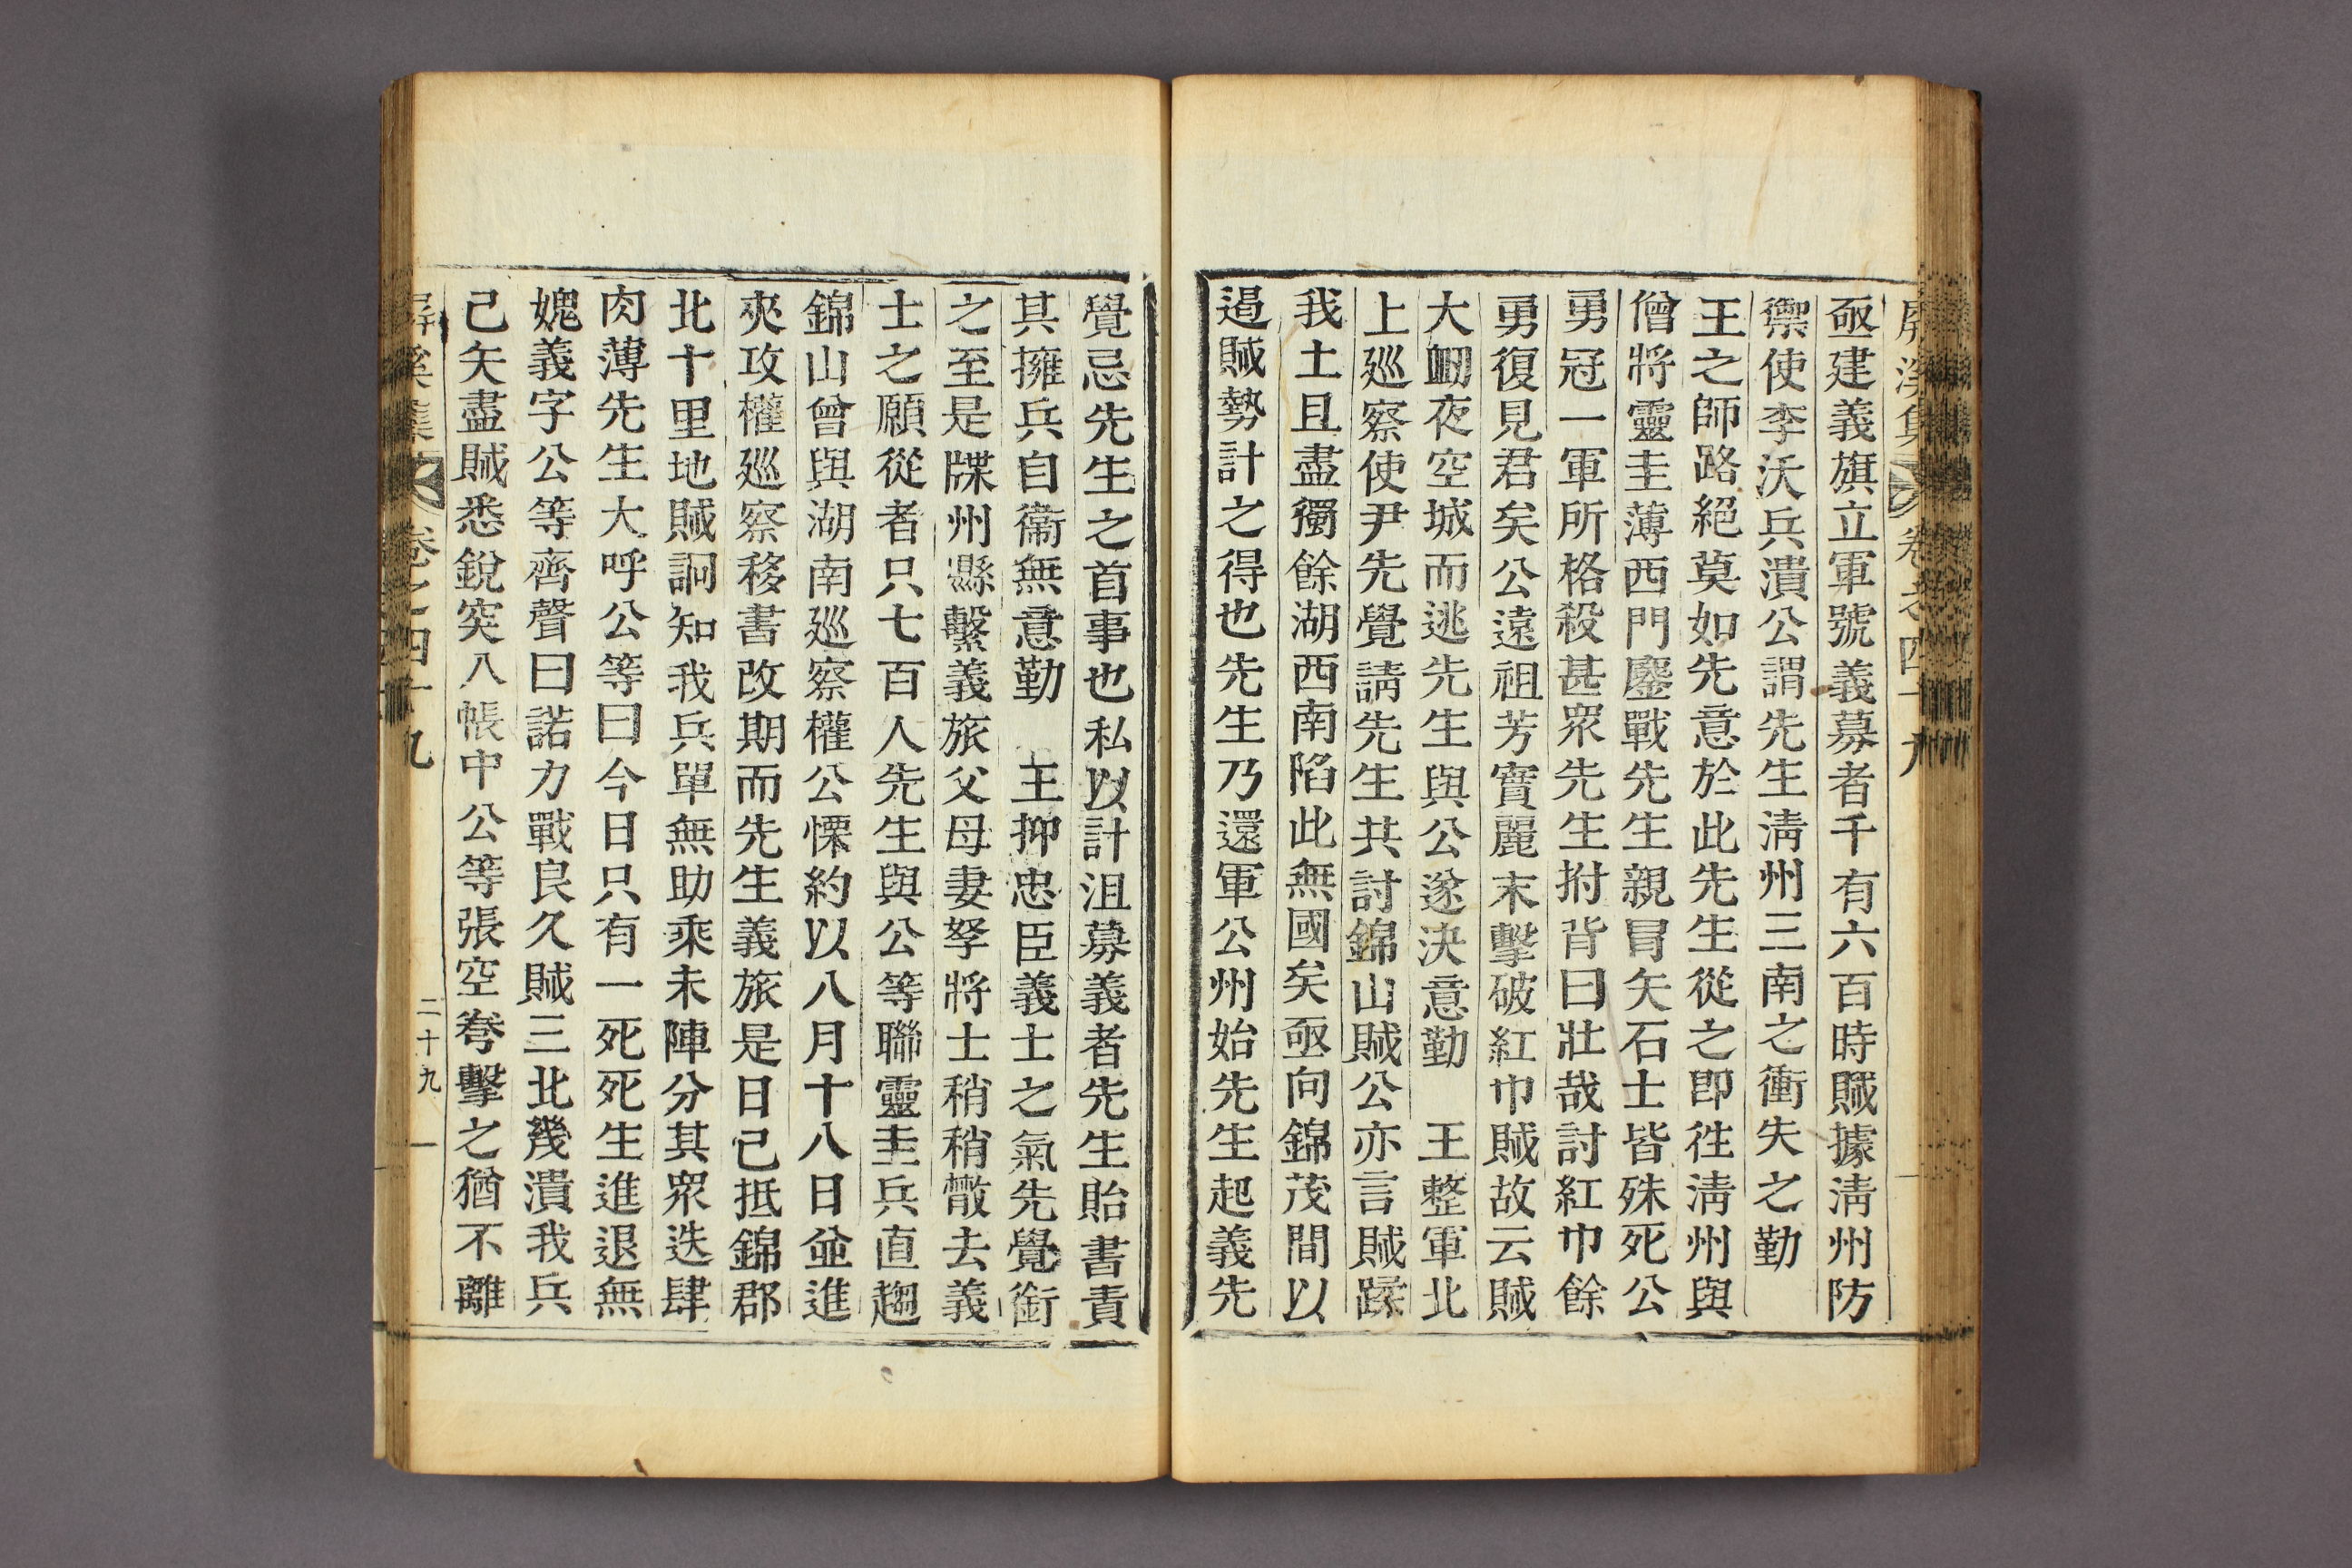 屛溪集 卷之四十九
亟建義旗立軍號義募者千有六百時賊據淸州防
禦使李沃兵潰公謂先生淸州三南之衝失之勤
王之師路絕莫如先意於此先生從之卽徃淸州與
僧將靈圭薄西門鏖戰先生親冒矢石士皆殊死公
勇冠一軍所格殺甚衆先生拊背曰壯哉討紅巾餘
勇復見君矣公遠祖芳實麗末擊破紅巾賊故云賊
大衂夜空城而逃先生與公遂決意勤 王整軍北
上廵察使尹先覺請先生共討錦山賊公亦言賊蹂
我土且盡獨餘湖西南陷此無國矣亟向錦茂間以
遏賊勢計之得也先生乃還軍公州始先生起義先
覺忌先生之首事也私以計沮募義者先生貽書責
其擁兵自衞無意勤 王抑忠臣義士之氣先覺銜
之至是牒州縣繫義旅父母妻孥將士稍稍散去義
士之願從者只七百人先生與公等聯靈圭兵直趨
錦山曾與湖南廵察權公慄約以八月十八日並進
夾攻權廵察移書改期而先生義旅是日已抵錦郡
北十里地賊詗知我兵單無助乘未陣分其衆迭肆
肉薄先生大呼公等曰今日只有一死死生進退無
媿義字公等齊聲曰諾力戰良久賊三北幾潰我兵
己矢盡賊悉銳突入帳中公等張空弮擊之猶不離
屛溪集 卷之四十九 二十九